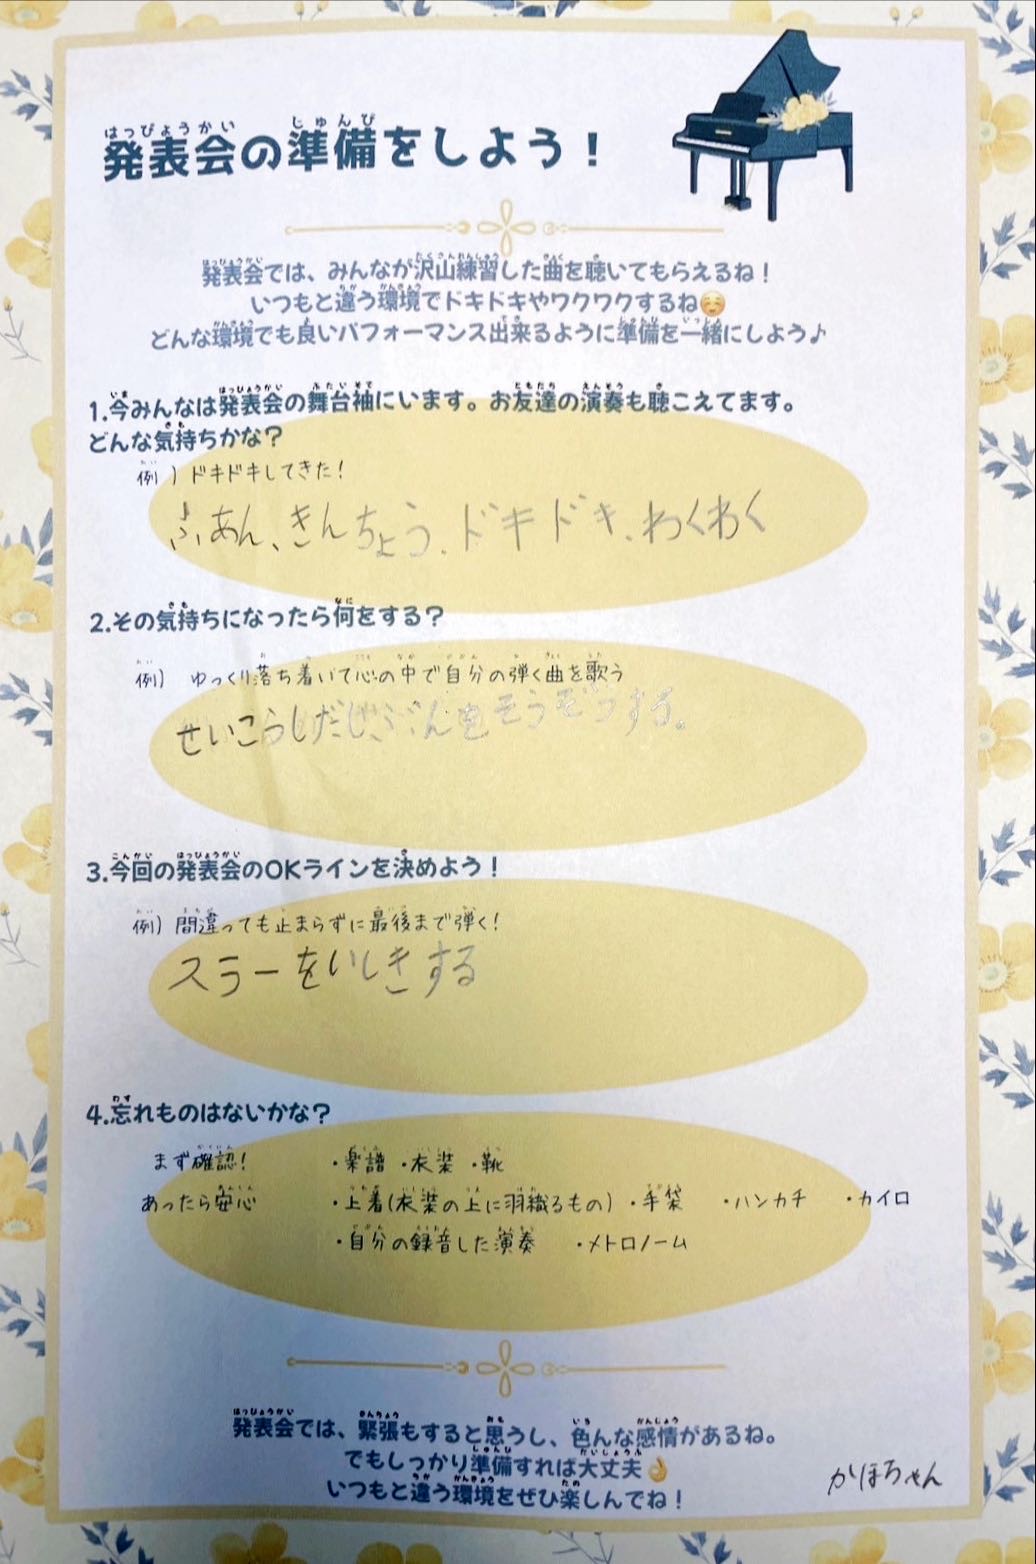 発表会の準備をしよう！
発表会では、みんなが沢山練習した曲を聴いてもらえるね！
いつもと違う環境でドキドキやワクワクするね☺️
どんな環境でも良いパフォーマンス出来るように準備を一緒にしよう♪
1.今みんなは発表会の舞台袖にいます。お友達の演奏も聴こえてます。
どんな気持ちかな？
例）ドキドキしてきた！
ふあん、きんちょう、ドキドキ、わくわく
2.その気持ちになったら何をする？
例） ゆっくり落ち着いて心の中で自分の弾く曲を歌う
せいこうしだじぶんをそうぞうする。
3.今回の発表会のOKラインを決めよう！
例）間違っても止まらずに最後まで弾く！
スラーをいしきする
4.忘れものはないかな？
まず確認！ ・楽譜 ・衣装 ・靴
あったら安心 ・上着(衣装の上に羽織るもの) ・手袋 ・ハンカチ ・カイロ
・自分の録音した演奏 ・メトロノーム
発表会では、緊張もすると思うし、色んな感情があるね。
でもしっかり準備すれば大丈夫👌
いつもと違う環境をぜひ楽しんでね！
かほちゃん